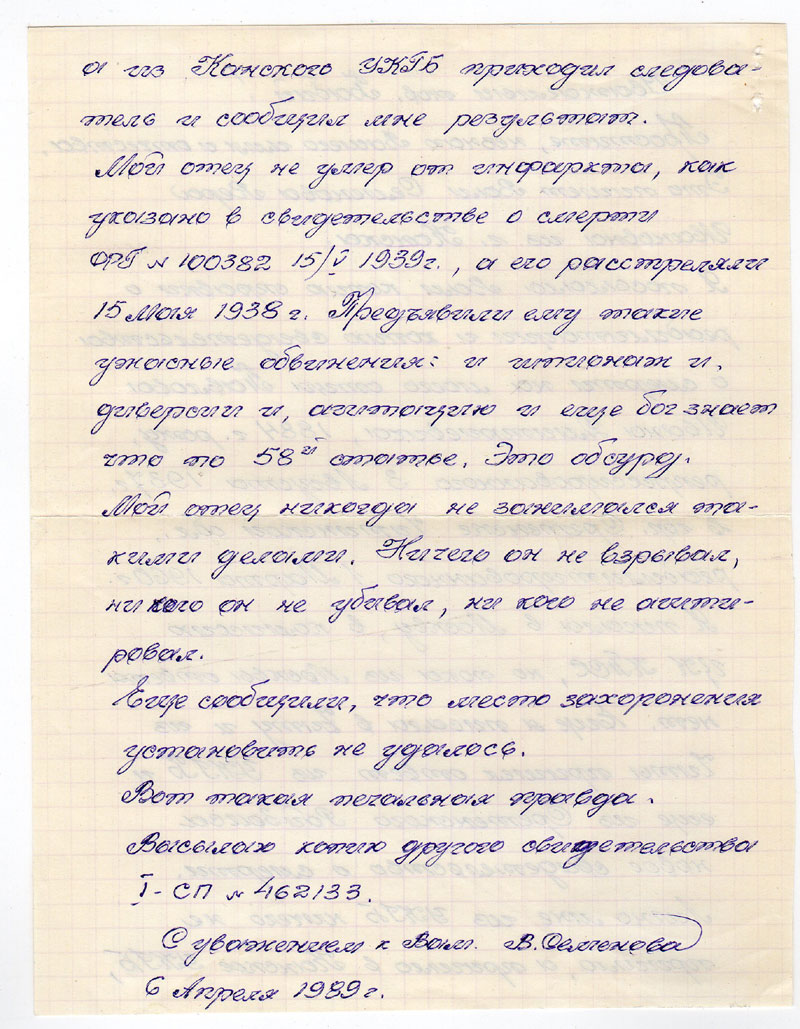 а из Канского УКГБ приходил следова-
тель и сообщил мне результат.
Мой отец не умер от инфаркта, как
указано в свидетельстве о смерти
ФРГ № 100382 15/V 1939г., а его расстреляли
15 мая 1938 г. Предъявили ему такие
ужасные обвинения: и шпионаж и,
диверсии и, агитацию и еще бог знает
что по 58ой статье. Это обсурд.
Мой отец никогда не занимался та-
кими делами. Ничего он не взрывал,
ни кого он не убивал, ни кого не агити-
ровал.
Еще сообщили, что место захоронения
установить не удалось.
Вот такая печальная правда.
Высылаю копию другого свидетельства
I-СП № 462133.
С уважением к Вам. В.Семенова
6 Апреля 1989г.